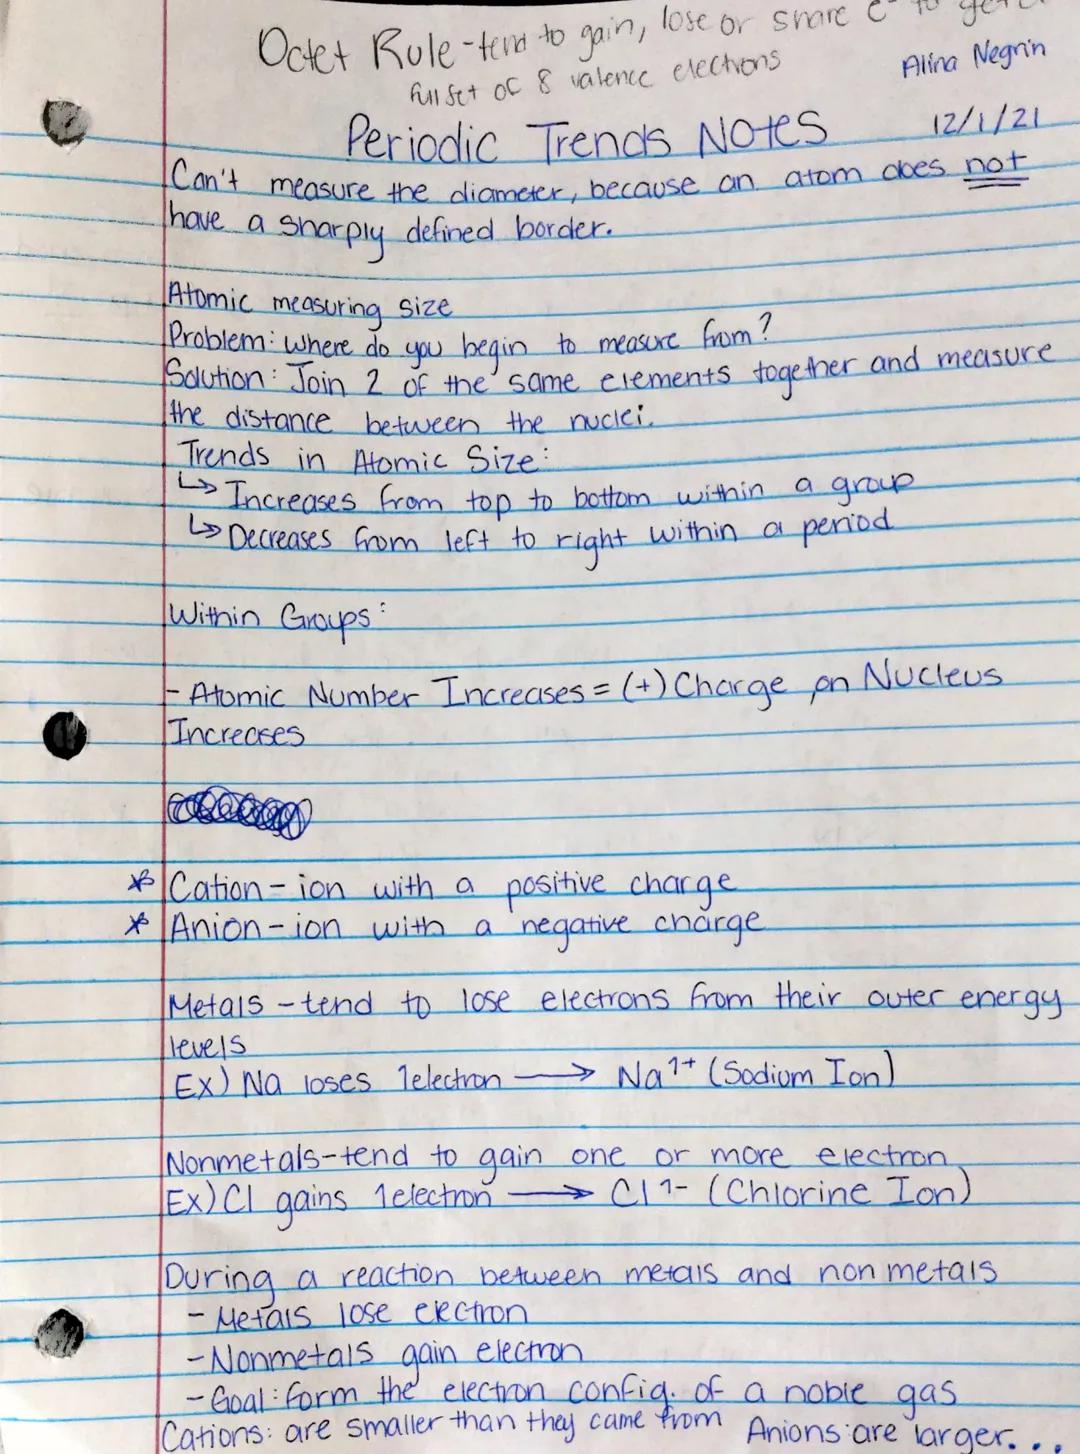 Octet Rule - tend to gain, lose or share e- to get a
full set of 8 valence electrons
Alina Negrin
Periodic Trends Notes
12/1/21
Can't measure the diameter, because an atom does not
have a sharply defined border.
Atomic measuring size
Problem: where do you begin to measure from?
Solution: Join 2 of the same elements together and measure
the distance between the nuclei.
Trends in Atomic Size:
↳ Increases from top to bottom within a group
↳ Decreases from left to right within a period
Within Groups:
- Atomic Number Increases = (+) Charge on Nucleus
Increases
* Cation - ion with a positive charge
* Anion - ion with a negative charge
Metals - tend to lose electrons from their outer energy
levels
Ex) Na loses 1electron → Na¹⁺ (Sodium Ion)
Nonmetals - tend to gain one or more electron
Ex) Cl gains 1electron → Cl¹⁻ (Chlorine Ion)
During a reaction between metals and non metals
- Metals lose electron
- Nonmetals gain electron
- Goal: form the electron config. of a noble gas
Cations: are smaller than they came from Anions: are larger...